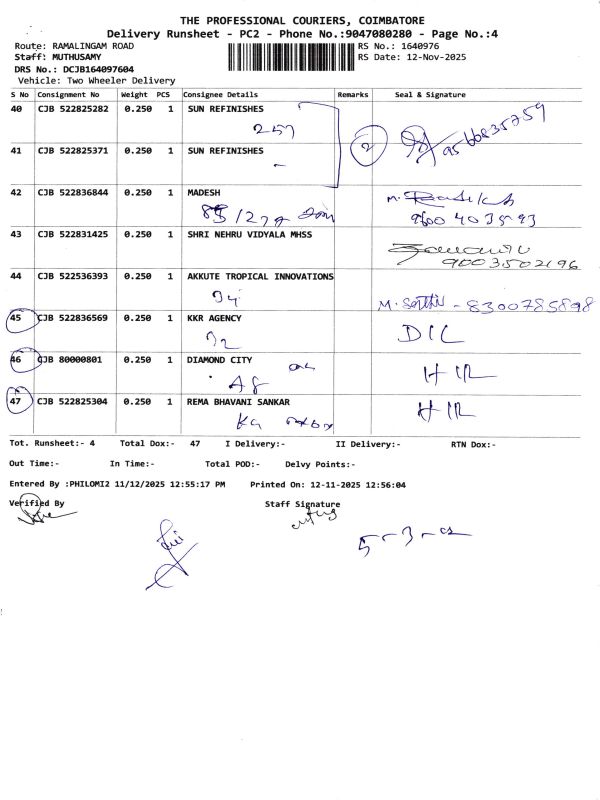 THE PROFESSIONAL COURIERS, COIMBATORE
Delivery Runsheet - PC2 - Phone No.:9047080280 - Page No.:4
Route: RAMALINGAM ROAD
RS No.: 1640976
Staff: MUTHUSAMY
RS Date: 12-Nov-2025
DRS No.: DCJB164097604
Vehicle: Two Wheeler Delivery
S No Consignment No Weight PCS Consignee Details Remarks Seal & Signature
40 CJB 522825282 0.250 1 SUN REFINISHES
257
2
9566835759
41 CJB 522825371 0.250 1 SUN REFINISHES
42 CJB 522836844 0.250 1 MADESH
9600403593
43 CJB 522831425 0.250 1 SHRI NEHRU VIDYALA MHSS
9003502196
44 CJB 522536393 0.250 1 AKKUTE TROPICAL INNOVATIONS
M. Sathi - 8300785898
45 CJB 522836569 0.250 1 KKR AGENCY
46 CJB 80000801 0.250 1 DIAMOND CITY
47 CJB 522825304 0.250 1 REMA BHAVANI SANKAR
Tot. Runsheet:- 4 Total Dox:- 47 I Delivery:- II Delivery:- RTN Dox:-
Out Time:- In Time:- Total POD:- Delvy Points:-
Entered By :PHILOMI2 11/12/2025 12:55:17 PM Printed On: 12-11-2025 12:56:04
Verified By Staff Signature